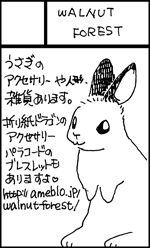 WALNUT
FOREST
うさぎの
アクセサリーや人形、
雑貨あります。
折り紙ドラゴンの
アクセサリー
パラコードの
ブレスレットも
ありますよ♡
http://ameblo.jp/
walnut-forest/